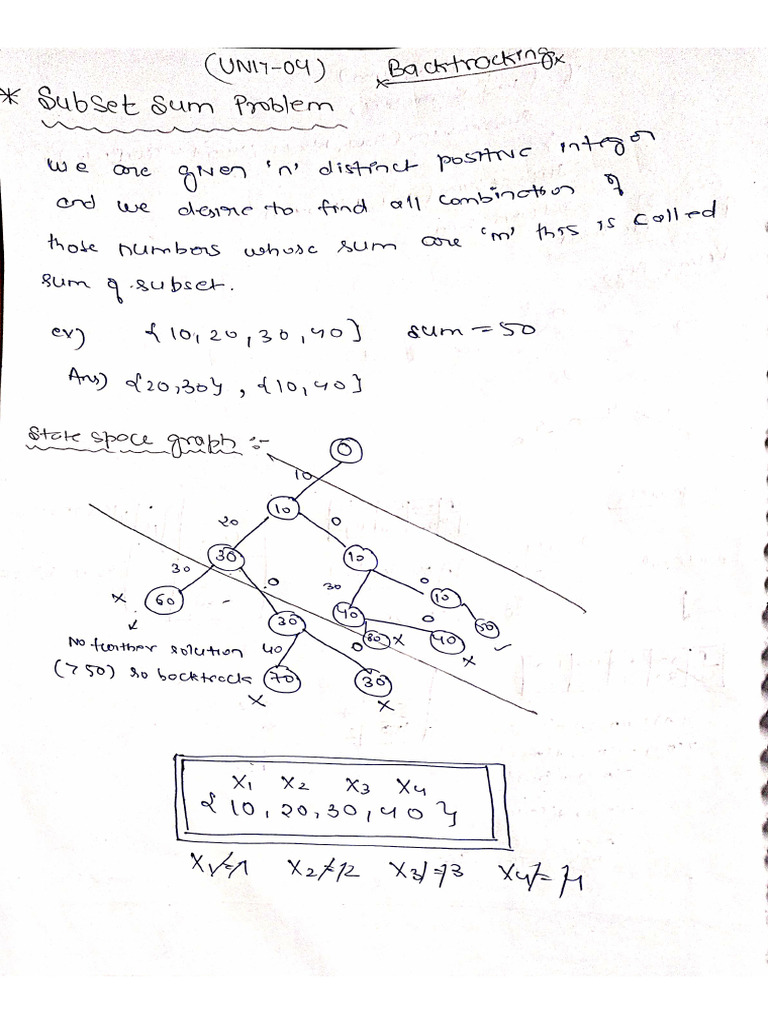 (UNIT-04) Backtrocking
* Subset Sum Problem
we are given 'n' distinct positive integer
and we desire to find all combination of
those numbers whose sum are 'm' this is called
sum of subset.
ex) {10, 20, 30, 40} sum = 50
Ans) {20,30}, {10,40}
State space graph :-
0
10
10
20 0
30 10
30 0 30 0
x 60 30 40 10
0 50 ✓
80 x 40 x
No further solution 40 0
(>50) so backtrack 70 30
x x
X1 X2 X3 X4
{10, 20, 30, 40}